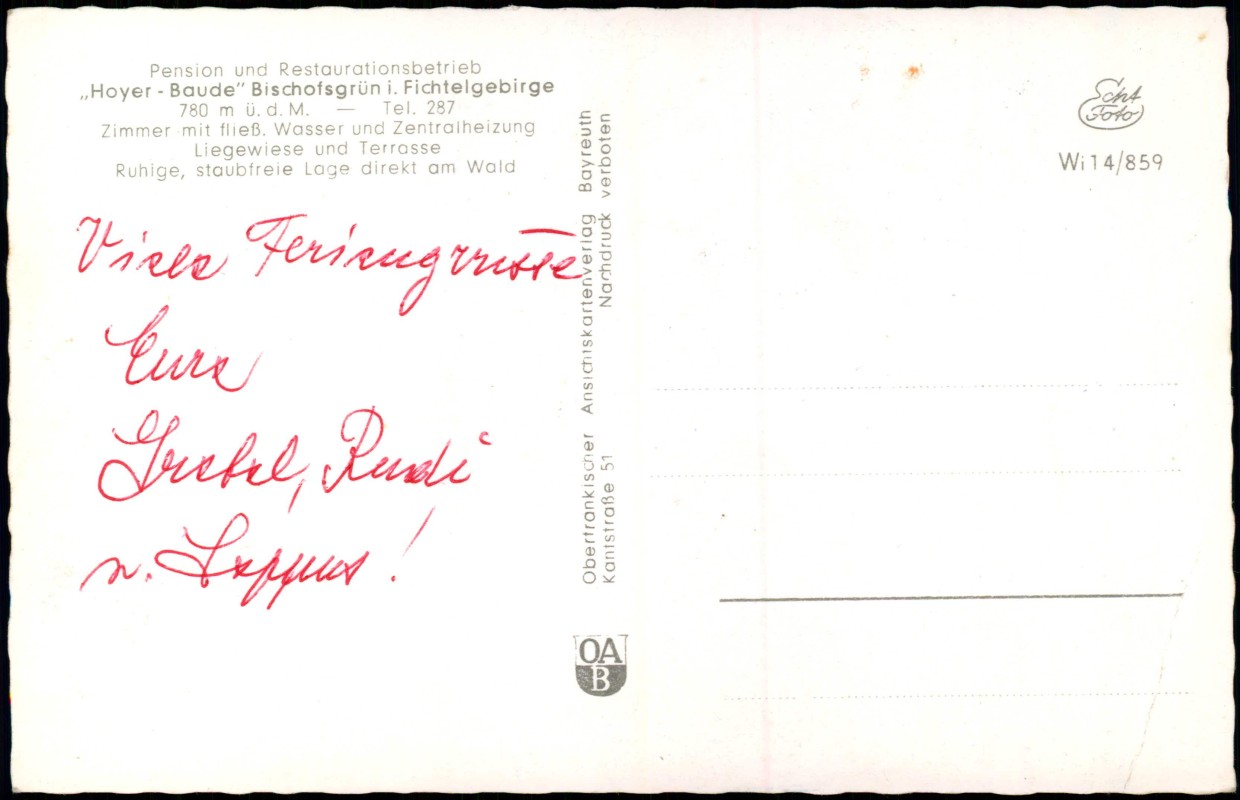 Pension und Restaurationsbetrieb
„Hoyer-Baude" Bischofsgrün i. Fichtelgebirge
780 m ü. d. M. — Tel. 287
Zimmer mit fließ. Wasser und Zentralheizung
Liegewiese und Terrasse
Ruhige, staubfreie Lage direkt am Wald
Viele Feriengrüsse
Eure
Gretel, Rudi
u.
Oberfränkischer Ansichtskartenverlag Bayreuth
Kantstraße 51 Nachdruck verboten
OA
B
Echt
Foto
Wi 14/859